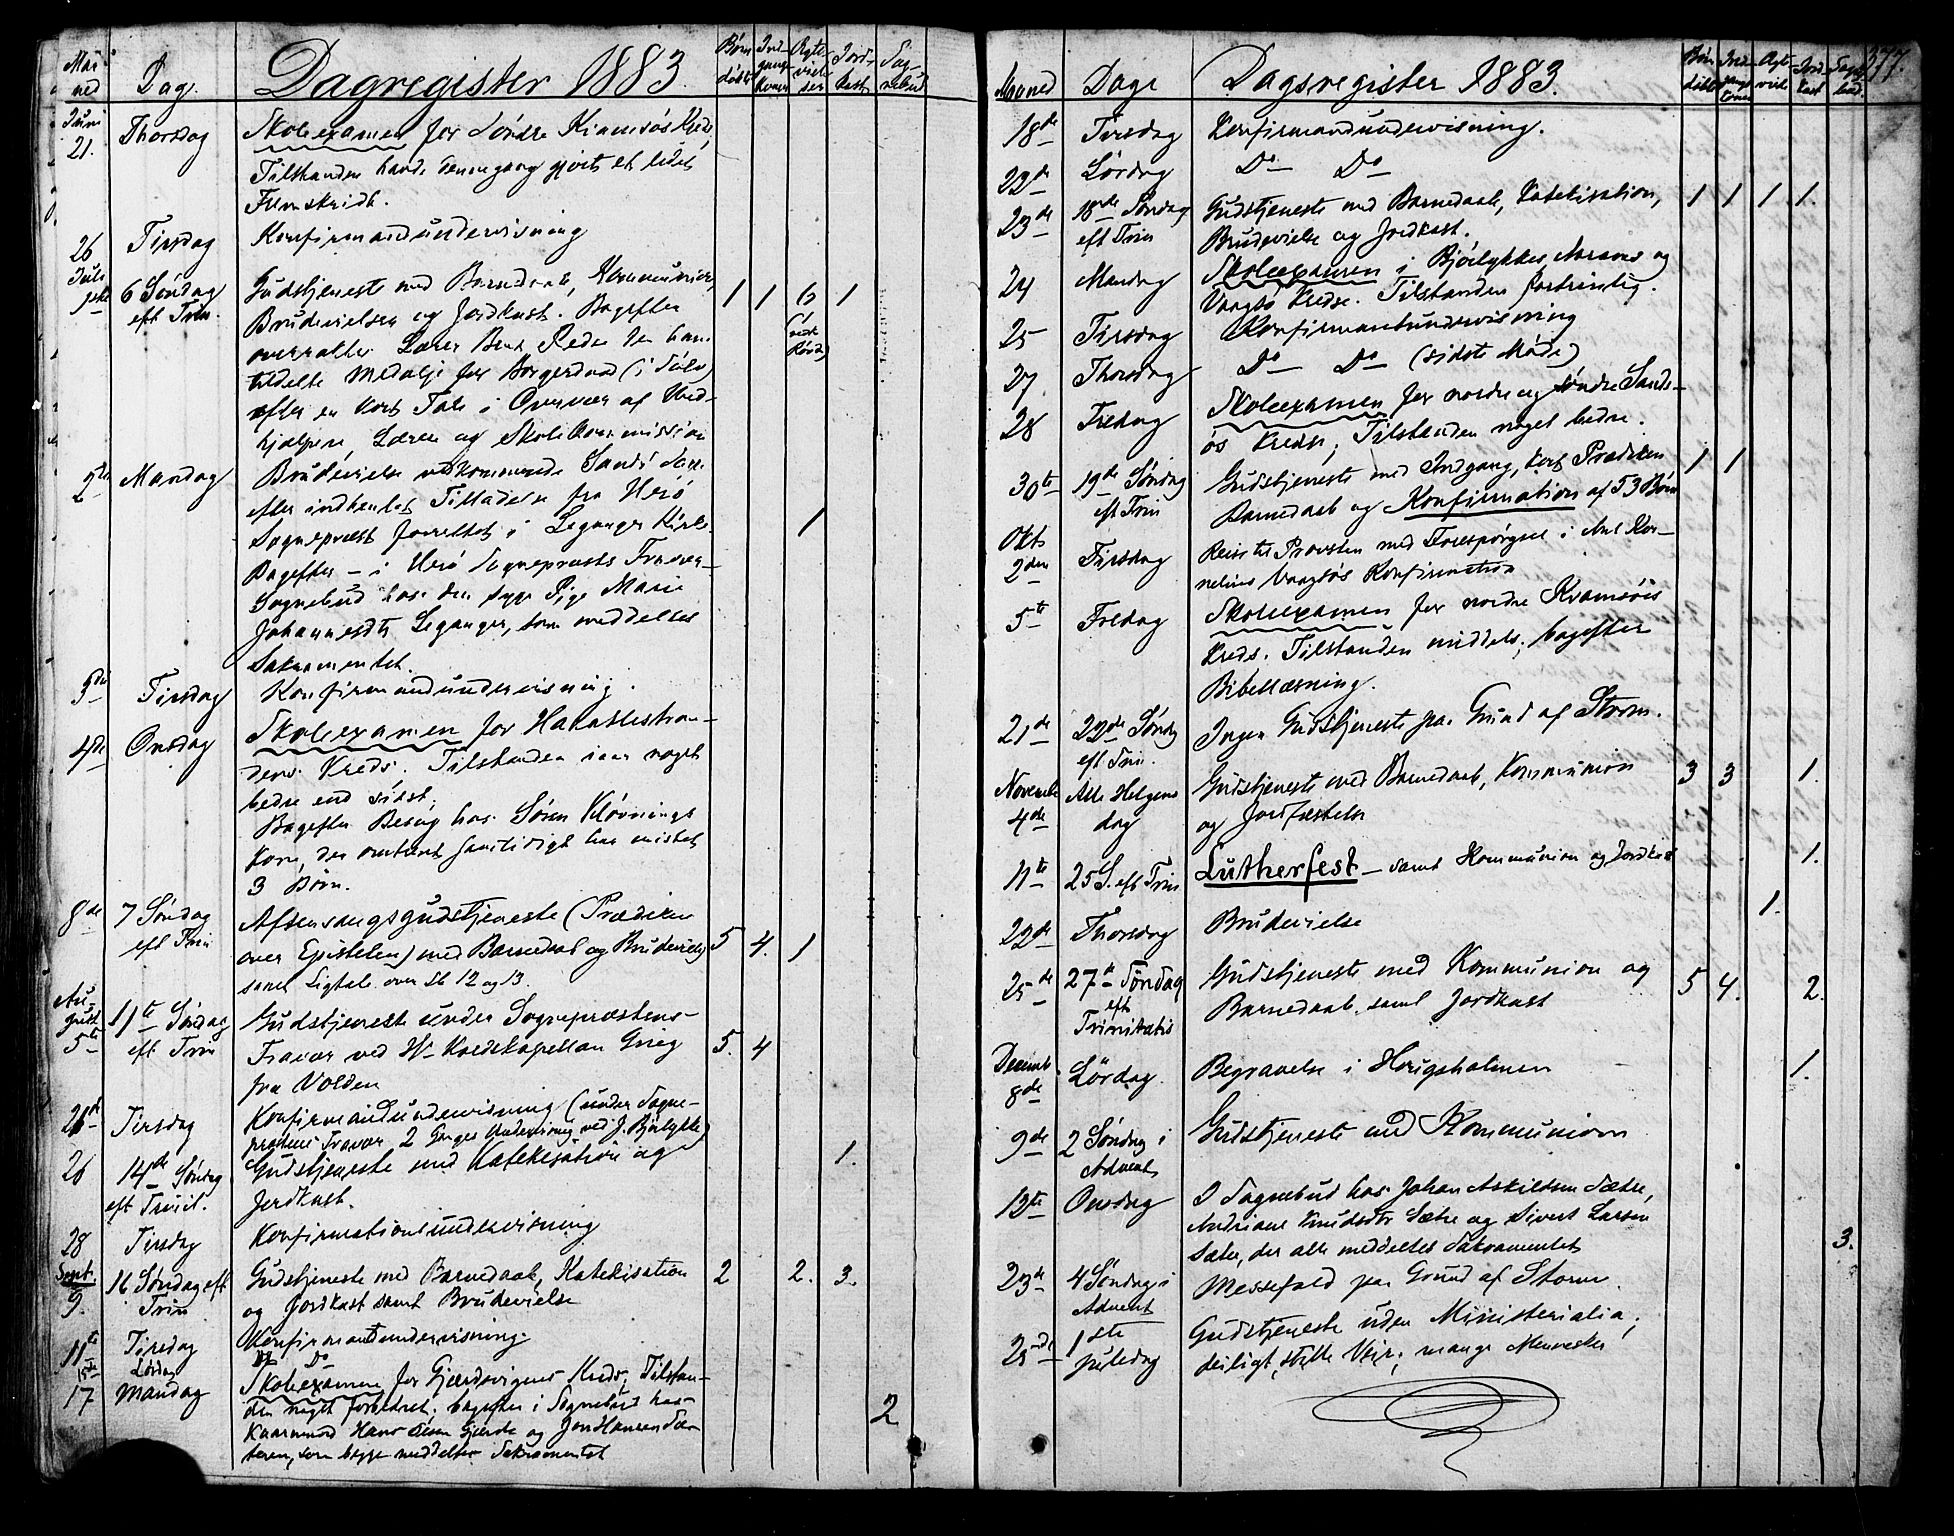 Maaned Dag. Dagregister 1883. Børn døbte Indgangs Koner Ægtevielser Jordkast Sognebud
Juni 21. Thorsdag Skoleexamen for Søndre Kvamsøs Kreds,
Tilstanden havde dennegang gjort et lidet
Fremskridt.
26 Tirsdag Konfirmandundervisning
Juli 1ste 6 Søndag eft Trin. Gudstjeneste med Barnedaab, Kommunion, 1 1 6 1
Brudevielser og Jordkast. Bagefter
overrakte Lærer Bent Rede den ham
tildelte Medalje for Borgerdaad (i Sølv)
efter en kort Tale i Overvær af Med-
hjælpere, Lærere og Skolekommission
2den Mandag Brudevielse vedkommende Sands Sogn
efter indhentet Tilladelse fra Herø
Sognepræst forrettet i Leganger Kirke 1
Bagefter – i Herø Sognepræsts Fravær –
Sognebud hos den syge Pige Marie
Johannesdtr Leganger, som meddeltes
Sakramentet.
3die Tirsdag Konfirmandundervisning.
4de Onsdag Skoleexamen for Hakallestran-
dens Kreds. Tilstanden iaar noget
bedre end sidst;
Bagefter Besøg hos Søren Kløvnings
Kone, der omtrent samtidigt har mistet
3 Børn.
8de 7 Søndag eft Trin Aftensangsgudstjeneste (Prædiken
over Epistelen) med Barnedaab og Brudevielse 5 4. 1
samt Ligtale over 12 og 13.
August 5te 11te Søndag eft Trin Gudstjeneste under Sognepræstens
Fravær ved Hr Kaldskapellan Grieg 5. 4
fra Volden
21de Tirsdag Konfirmandundervisning (under Sogne-
præstens Fravær 2 Ganges Undervisning ved J. Bjørlykke)
26 14de Søndag eft Trinit. Gudstjeneste med Katekisation og 1.
Jordkast.
28 Tirsdag Konfirmationsundervisning
Sept. 9. 16 Søndag eft Trin Gudstjeneste med Barnedaab, Katekisation 2 2. 3.
og Jordkast samt Brudevielse
11te Tirsdag Konfirmantundervisning.
15de Lørdag Do Do
17 Mandag Skoleexamen for Gjerdsvigens Kreds, Tilstan-
den noget forbedret. bagefter i Sognebud hos 2
Kaarmand Hans Gjerde og Jon Hansen Sæ-
teren, som begge meddeltes Sakramentet
Maaned Dage Dagsregister 1883. Børn døbte Indgangs Koner Ægtevie Jordkast Sognebud. 377.
18de Tirsdag Konfirmandundervisning.
22de Lørdag Do Do
23de 18de Søndag eft Trin Gudstjeneste med Barnedaab, Katekisation, 1 1 1 1.
Brudevielse og Jordkast.
24 Mandag Skoleexamen i Bjørlykkes, Aarams og
Vaagsø Kredse. Tilstanden fortrinlig.
25 Tirsdag Konfirmantundervisning
27. Thorsdag Do Do (sidste Møde)
28 Fredag Skoleexamen for nordre og søndre Sands-
øs Kredse; Tilstanden noget bedre.
30te 19de Søndag eft Trin Gudstjeneste med Indgang, kort Prædiken 1 1
Barnedaab og Konfirmation af 53 Børn
Okt. 2den Tirsdag Reise til Provsten med Forespørgsel i Anl Kor-
nelius Vaagsøs Konfirmation
5te Fredag Skoleexamen for nordre Kvamsøs
Kreds. Tilstanden middels; bagefter
Bibellæsning.
21de 22de Søndag eft Trin. Ingen Gudstjeneste paa Grund af Storm.
November 4de Alle Helgens dag Gudstjeneste med Barnedaab, Kommunion 3 3 1.
og Jordfæstelse
11te 25 S. eft Trin Lutherfest – samt Kommunion og Jordkast 1.
22de Thorsdag Brudevielse 1.
25de 27de Søndag eft Trinitatis Gudstjeneste med Kommunion og 5 4. 2.
Barnedaab, samt Jordkast
Decemb. 8de Lördag. Begravelse i Herigsholmen 1.
9de 2 Søndag i Advent Gudstjeneste med Kommunion
12te Onsdag I Sognebud hos Johan Askildsen Sætre,
Andriane Knudsdtr Sætre og Sivert Larsen
Sætre, der alle meddeltes Sakramentet 3.
23de 4 Søndag i Advent Messefald paa Grund af Storm.
25de 1ste Juledag Gudstjeneste uden Ministerialia;
deiligt, stille Veir; mange Mennesker